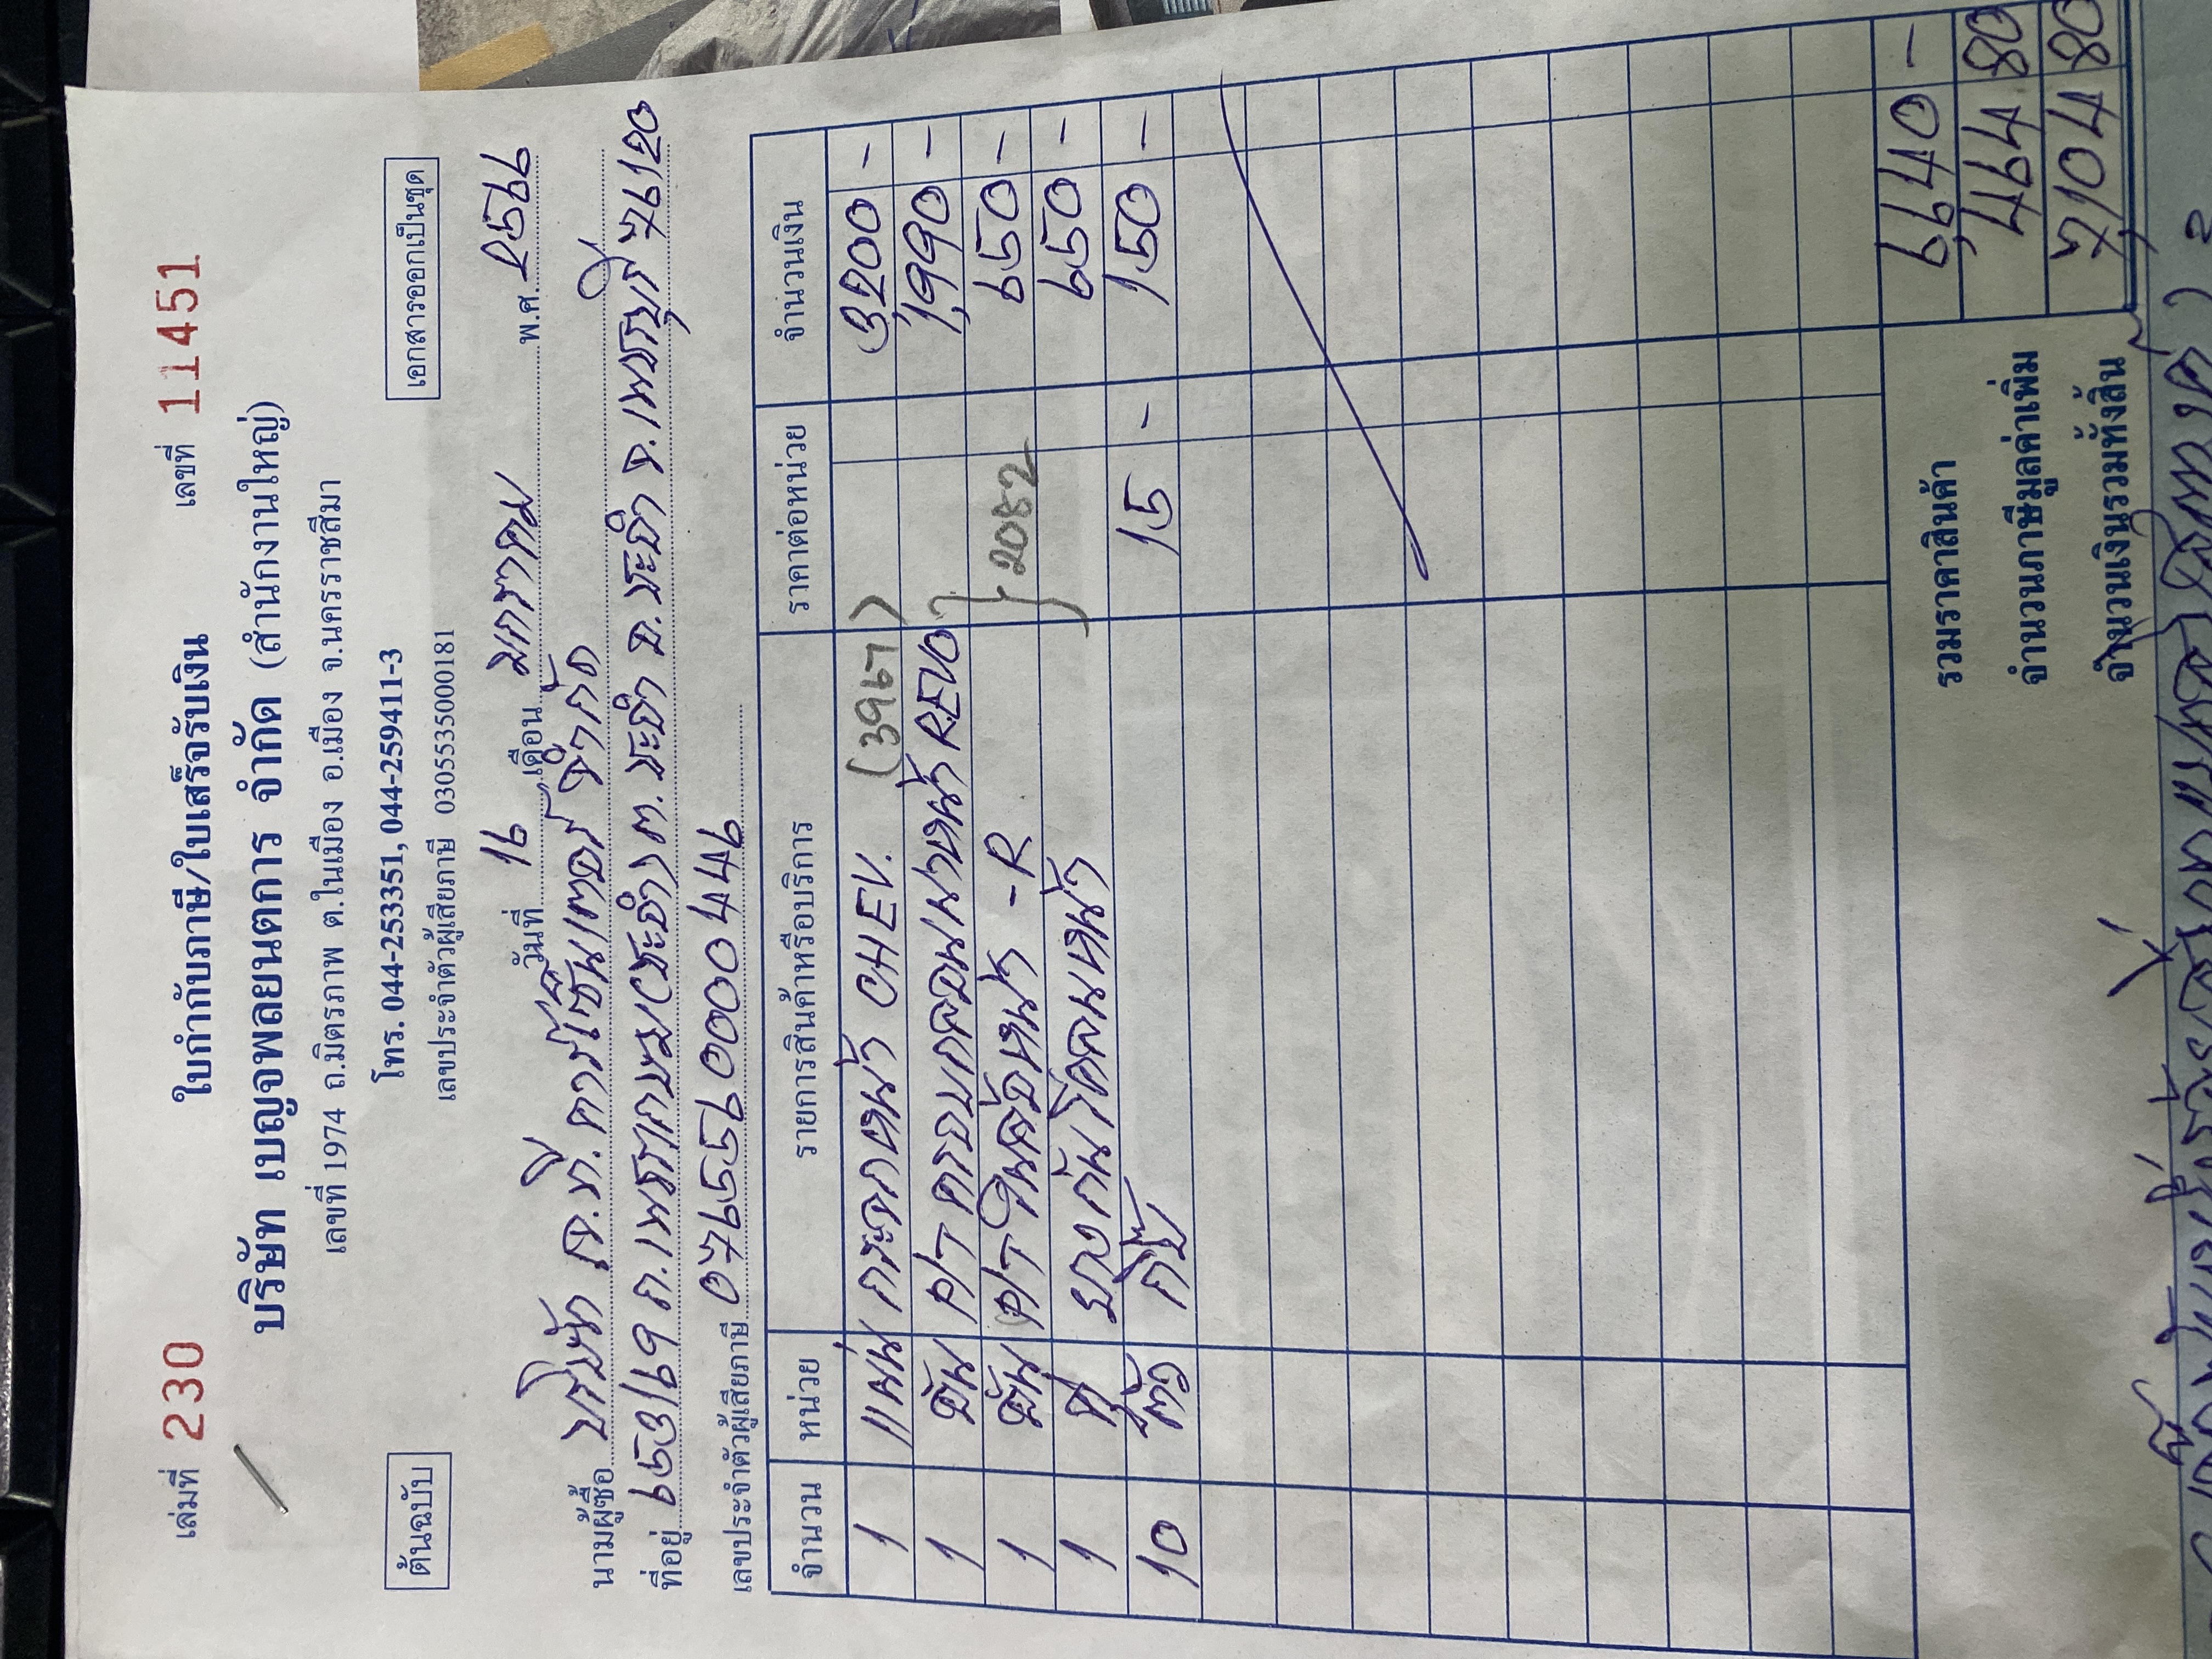 เล่มที่ 230 ใบกำกับภาษี/ใบเสร็จรับเงิน เลขที่ 11451
บริษัท เบญจพลยนตการ จำกัด (สำนักงานใหญ่)
เลขที่ 1974 ถ.มิตรภาพ ต.ในเมือง อ.เมือง จ.นครราชสีมา
โทร. 044-253351, 044-259411-3
ต้นฉบับ เลขประจำตัวผู้เสียภาษี 0305535000181 เอกสารออกเป็นชุด
วันที่ 16 เดือน มกราคม พ.ศ. 2566
นามผู้ซื้อ บริษัท เจ.ที.คาร์เซ็นเตอร์ จำกัด
ที่อยู่ 653/69 ถ.เพชรเกษม(ชะอำ) ต.ชะอำ อ.ชะอำ จ.เพชรบุรี 76120
เลขประจำตัวผู้เสียภาษี 0765590000446
จำนวน หน่วย รายการสินค้าหรือบริการ ราคาต่อหน่วย จำนวนเงิน
1 แผ่น กระจกหน้า CHEV. (3967) 3,200 -
1 อัน คอนโซลหน้า REVO 1,990 -
1 อัน หน้า -R } 2082 650 -
1 ยางกันโคลนหน้า 650 -
10 ตัว กิ๊บ 15 - 150 -
รวมราคาสินค้า 6,640 -
จำนวนภาษีมูลค่าเพิ่ม 464 80
จำนวนเงินรวมทั้งสิ้น 7,104 80